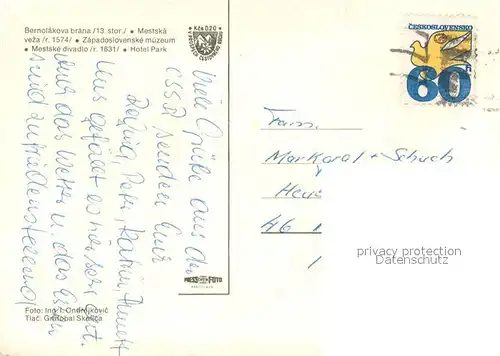 Bernolákova brána /13. stor./ • Mestská
veža /r. 1574/ • Západoslovenské múzeum
• Mestske divadlo /r. 1831/ • Hotel Park
Kčs 0,20
ČESKOSLOVENSKO
60
Viele Grüße aus der
ČSSR senden Euch
Peter, Katrin, Annett
Uns gefällt es hier sehr gut.
Auch das Wetter u. das Essen
sind zufriedenstellend
Fam.
Markgraf + Schuch
Heu
46
privacy protection
PRESSFOTO
BRATISLAVA
Foto: Ing. I. Ondrejkovič
Tlač: Grafobal Skalica